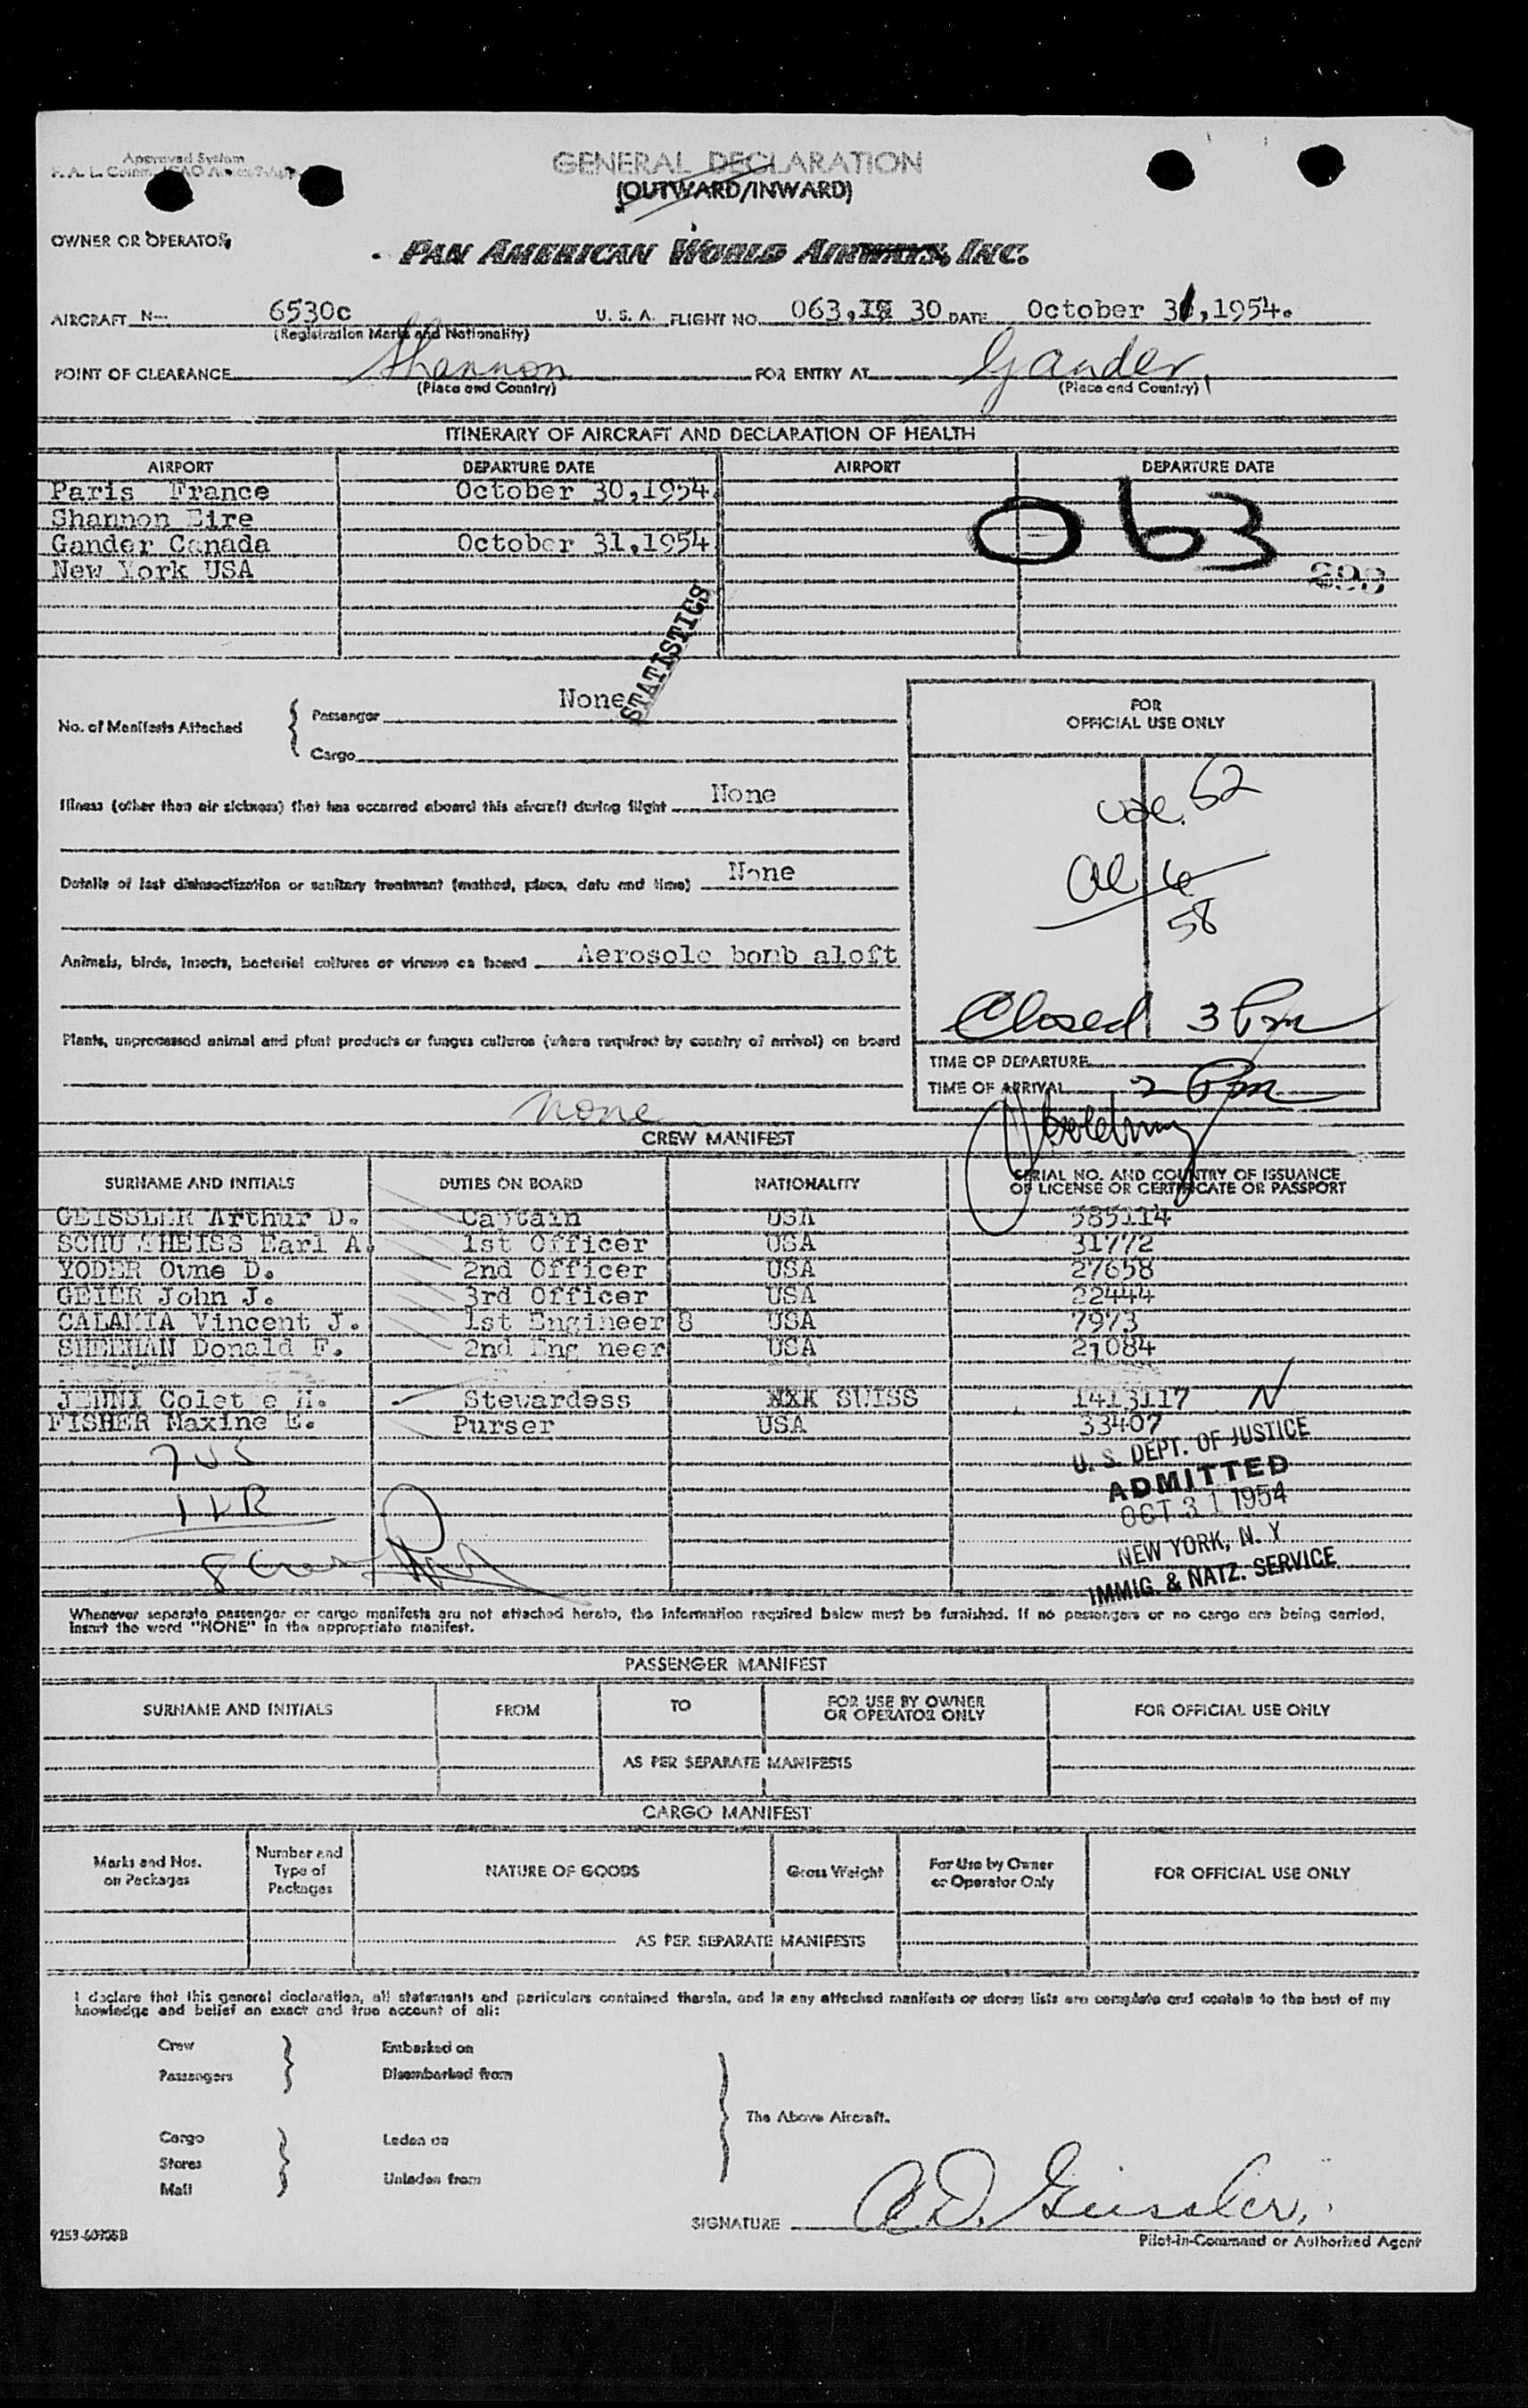 Approved System
GENERAL DECLARATION
(OUTWARD/INWARD)
OWNER OR OPERATOR
PAN AMERICAN WORLD AIRWAYS, INC.
AIRCRAFT N— 6530c U. S. A. FLIGHT NO. 063, 30 DATE October 31,1954.
(Registration Marks and Nationality)
POINT OF CLEARANCE Shannon FOR ENTRY AT Gander
(Place and Country) (Place and Country)
ITINERARY OF AIRCRAFT AND DECLARATION OF HEALTH
AIRPORT DEPARTURE DATE AIRPORT DEPARTURE DATE
Paris France October 30,1954
Shannon Eire
Gander Canada October 31,1954
New York USA
063
293
STATISTICS
No. of Manifests Attached { Passenger None
Cargo
FOR
OFFICIAL USE ONLY
Illness (other than air sickness) that has occurred aboard this aircraft during flight None
52
Details of last disinsectization or sanitary treatment (method, place, date and time) None
al 6
58
Animals, birds, insects, bacterial cultures or viruses on board Aerosole bomb aloft
Closed 3 Pm
Plants, unprocessed animal and plant products or fungus cultures (where required by country of arrival) on board
TIME OF DEPARTURE
TIME OF ARRIVAL 2 Pm
none
CREW MANIFEST
SURNAME AND INITIALS DUTIES ON BOARD NATIONALITY SERIAL NO. AND COUNTRY OF ISSUANCE
OF LICENSE OR CERTIFICATE OR PASSPORT
GEISSLER Arthur D. Captain USA 585114
SCHU THEISS Earl A. 1st Officer USA 31772
YODER Ovne D. 2nd Officer USA 27658
GEIER John J. 3rd Officer USA 22444
CALAMIA Vincent J. 1st Engineer 8 USA 7973
SHEEHAN Donald F. 2nd Eng neer USA 21084
JENNI Colet e H. Stewardess XXX SWISS 1413117 N
FISHER Maxine E. Purser USA 33407
7 US
8 Crew
U. S. DEPT. OF JUSTICE
ADMITTED
OCT 31 1954
NEW YORK, N. Y.
IMMIG. & NATZ. SERVICE
Whenever separate passenger or cargo manifests are not attached hereto, the information required below must be furnished. If no passengers or no cargo are being carried,
insert the word "NONE" in the appropriate manifest.
PASSENGER MANIFEST
SURNAME AND INITIALS FROM TO FOR USE BY OWNER
OR OPERATOR ONLY FOR OFFICIAL USE ONLY
AS PER SEPARATE MANIFESTS
CARGO MANIFEST
Marks and Nos.
on Packages Number and
Type of
Packages NATURE OF GOODS Gross Weight For Use by Owner
or Operator Only FOR OFFICIAL USE ONLY
AS PER SEPARATE MANIFESTS
I declare that this general declaration, all statements and particulars contained therein, and in any attached manifests or stores lists are complete and contain to the best of my
knowledge and belief an exact and true account of all:
Crew Embarked on
Passengers Disembarked from
The Above Aircraft.
Cargo Laden on
Stores
Mail Unladen from
SIGNATURE A.D. Geissler.
Pilot-in-Command or Authorized Agent